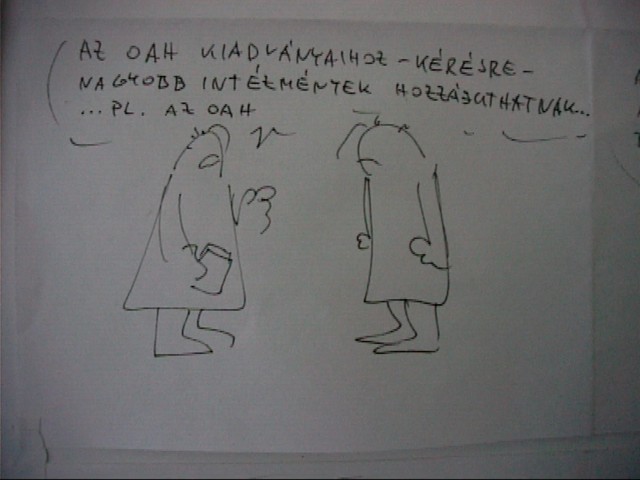 AZ OAH KIADVÁNYAIHOZ - KÉRÉSRE -
NAGYOBB INTÉZMÉNYEK HOZZÁJUTHATNAK...
... PL. AZ OAH